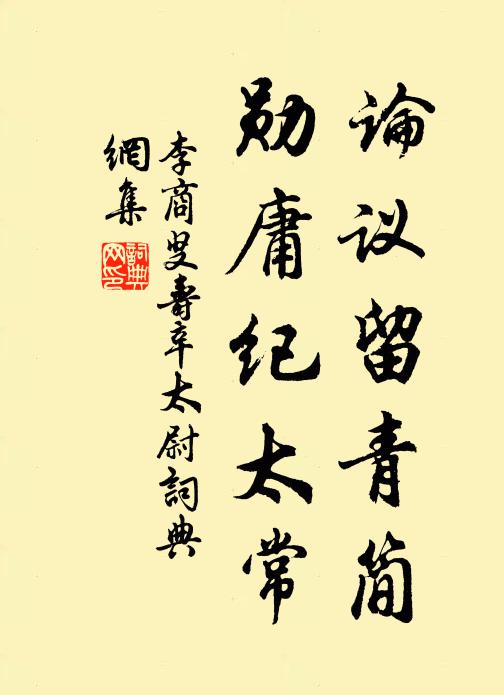 论议留青简
勋庸纪太常
李商叟寿辛太尉詞典
網集
詞典网印